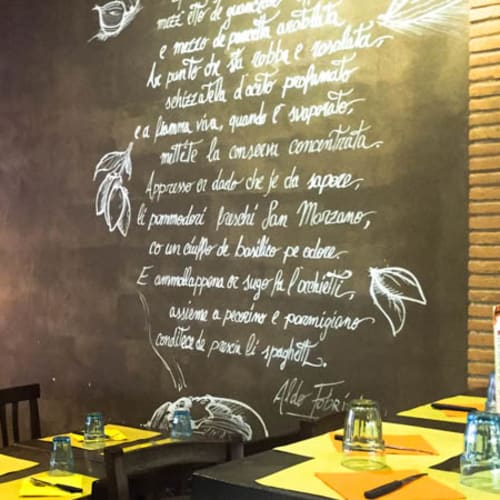 mezz' etto de guanciale
e mezzo de pancetta arrotolata
Ar punto che sta robba è rosolata,
schizzatela d'aceto profumato
e a fiamma viva, quando è svaporato,
mettete la conserva concentrata.
Appresso er dado che je dà sapore,
li pommodori freschi San Marzano,
co un ciuffo de basilico pe odore.
E ammollappena er sugo fa l'occhietti,
assieme a pecorino e parmigiano
conditece de prescia li spaghetti.
Aldo Fabrizi